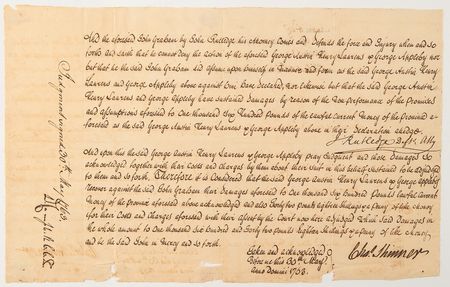 And the aforesaid John Graham by John Rutledge his Attorney Comes and Defends the force and Injury when and so
forth and saith that he cannot deny the action of the aforesaid George Austin Henry Laurens & George Appleby nor
but that he the said John Graham did assume upon himself in Manner and form as the said George Austin Henry
Laurens and George Appleby above against him have declared, nor likewise but that the said George Austin
Henry Laurens and George Appleby have sustained Damages by reason of the Non performance of the Promises
and assumptions aforesaid to One thousand Six hundred Pounds of the lawful Current Money of the Province
aforesaid as the said George Austin Henry Laurens and George Appleby above in their Declaration alledge.
J Rutledge Defts Atty
And upon this the said George Austin Henry Laurens & George Appleby pray Judgment and those Damages so
acknowledged together with their Costs and Charges by them about their Suit in this behalf sustained to be adjudged
to them and so forth. Therefore it is Considered that the said George Austin Henry Laurens & George Appleby
recover against the said John Graham their Damages aforesaid to One thousand Six hundred Pounds lawful Current
Money of the province aforesaid above acknowledged and also Forty two pounds Eighteen Shillings & of like Money
for their Costs and Charges aforesaid with their assent by the Court now here adjudged Which said Damages in
the whole amount to One thousand Six hundred and Forty two pounds Eighteen Shillings & of like Money
and he the said John in Mercy and so forth.
Taken and acknowledged
before me this 30th May
Anno Domini 1763.
Chas Skinner
Judgment signed 30th May 1763